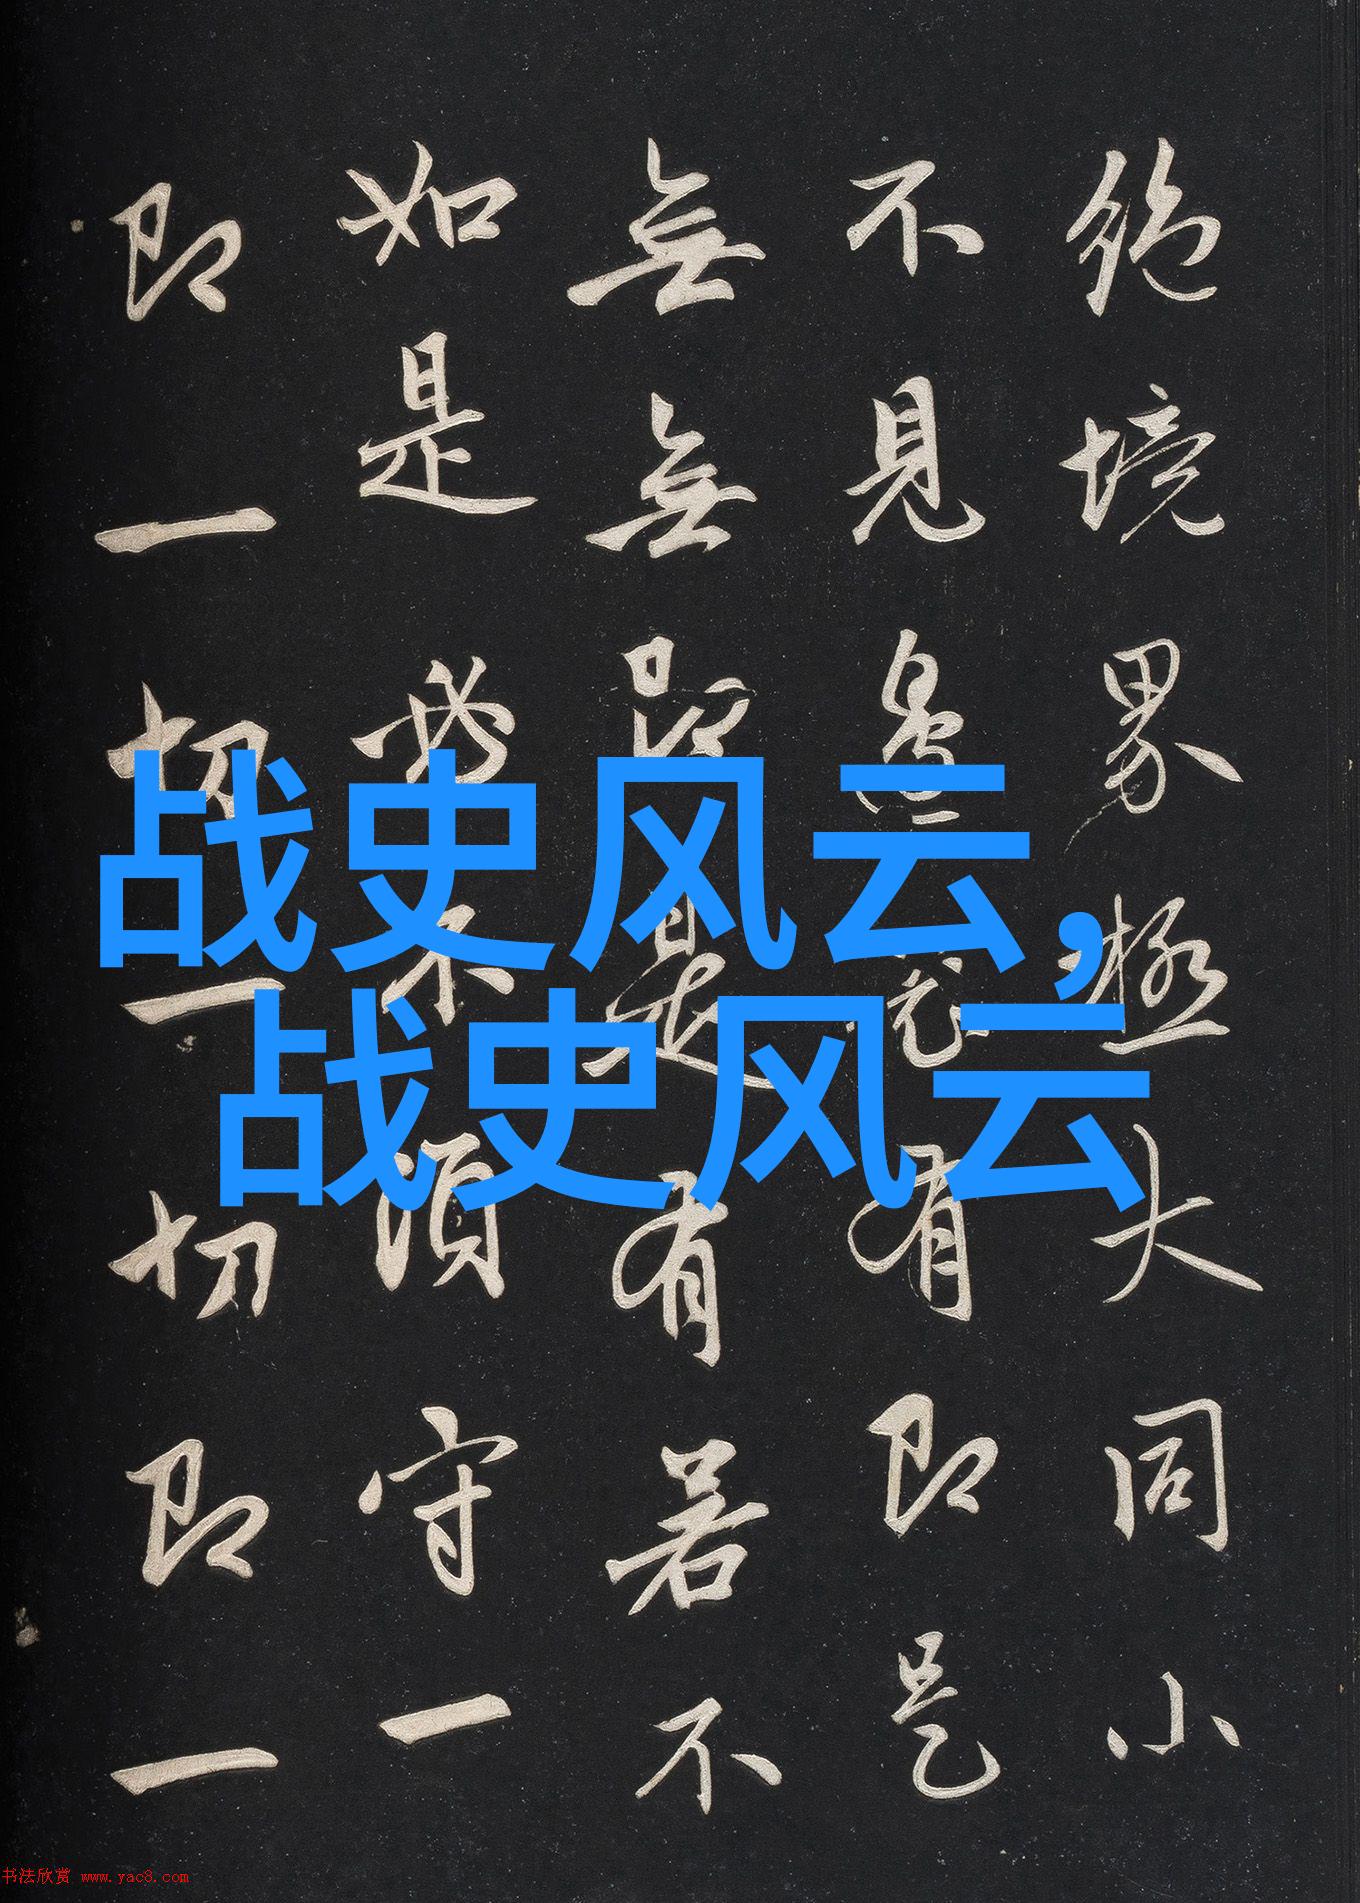 战史风云,
战史风云
絶境界極大同小
不見邊有即是
無無即是有若不
如是必不須守一
即一切一切即一
书法欣赏 www.yac8.com